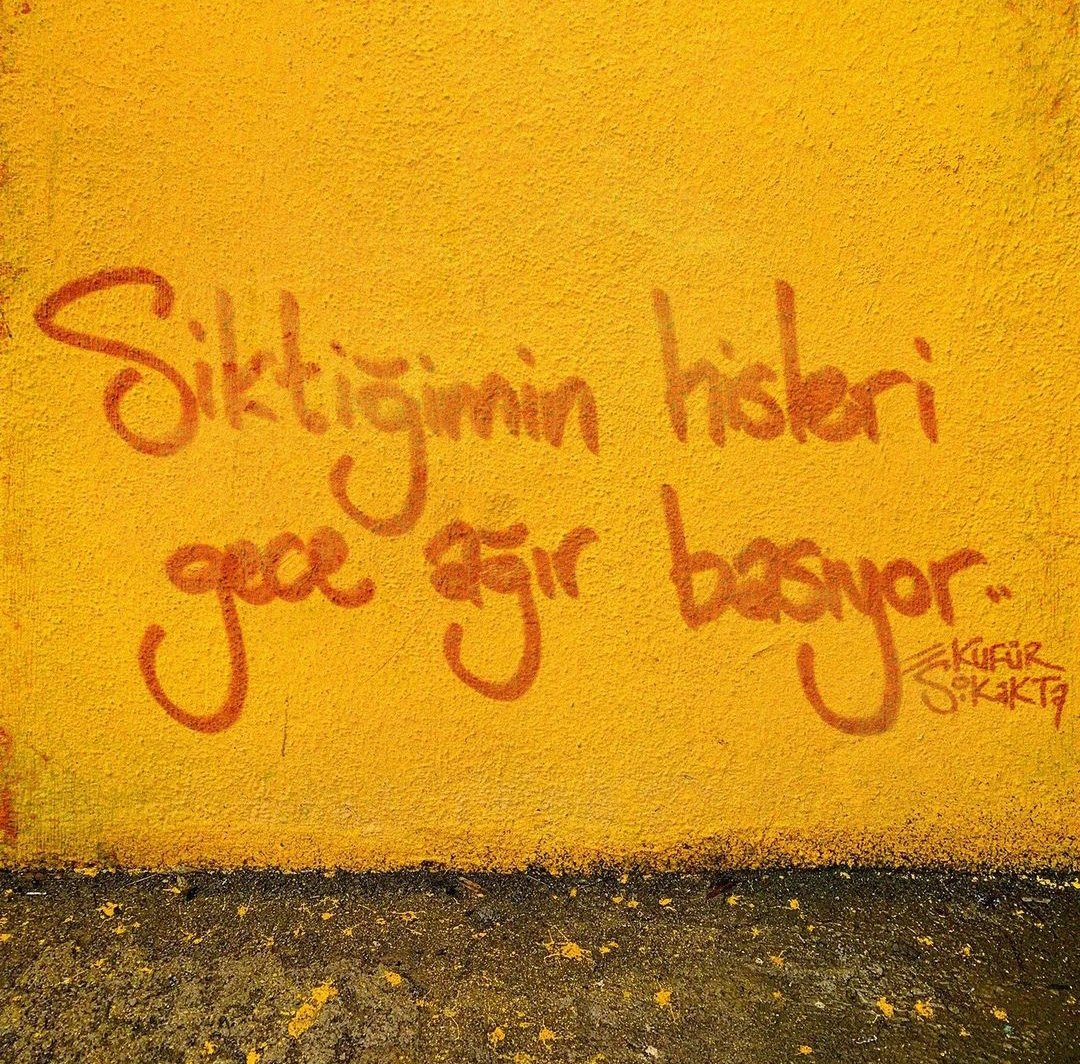 Siktiğimin hisleri
gece ağır basıyor..
KÜFÜR
SOKAKTA